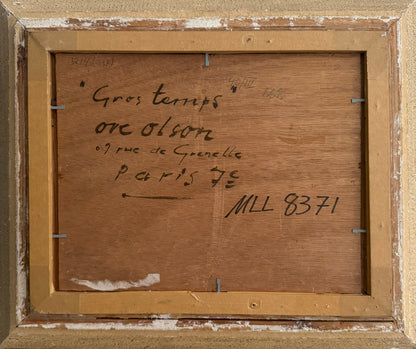 "Gros temps"
ove olson
rue de Grenelle
Paris 7e
MLL 8371